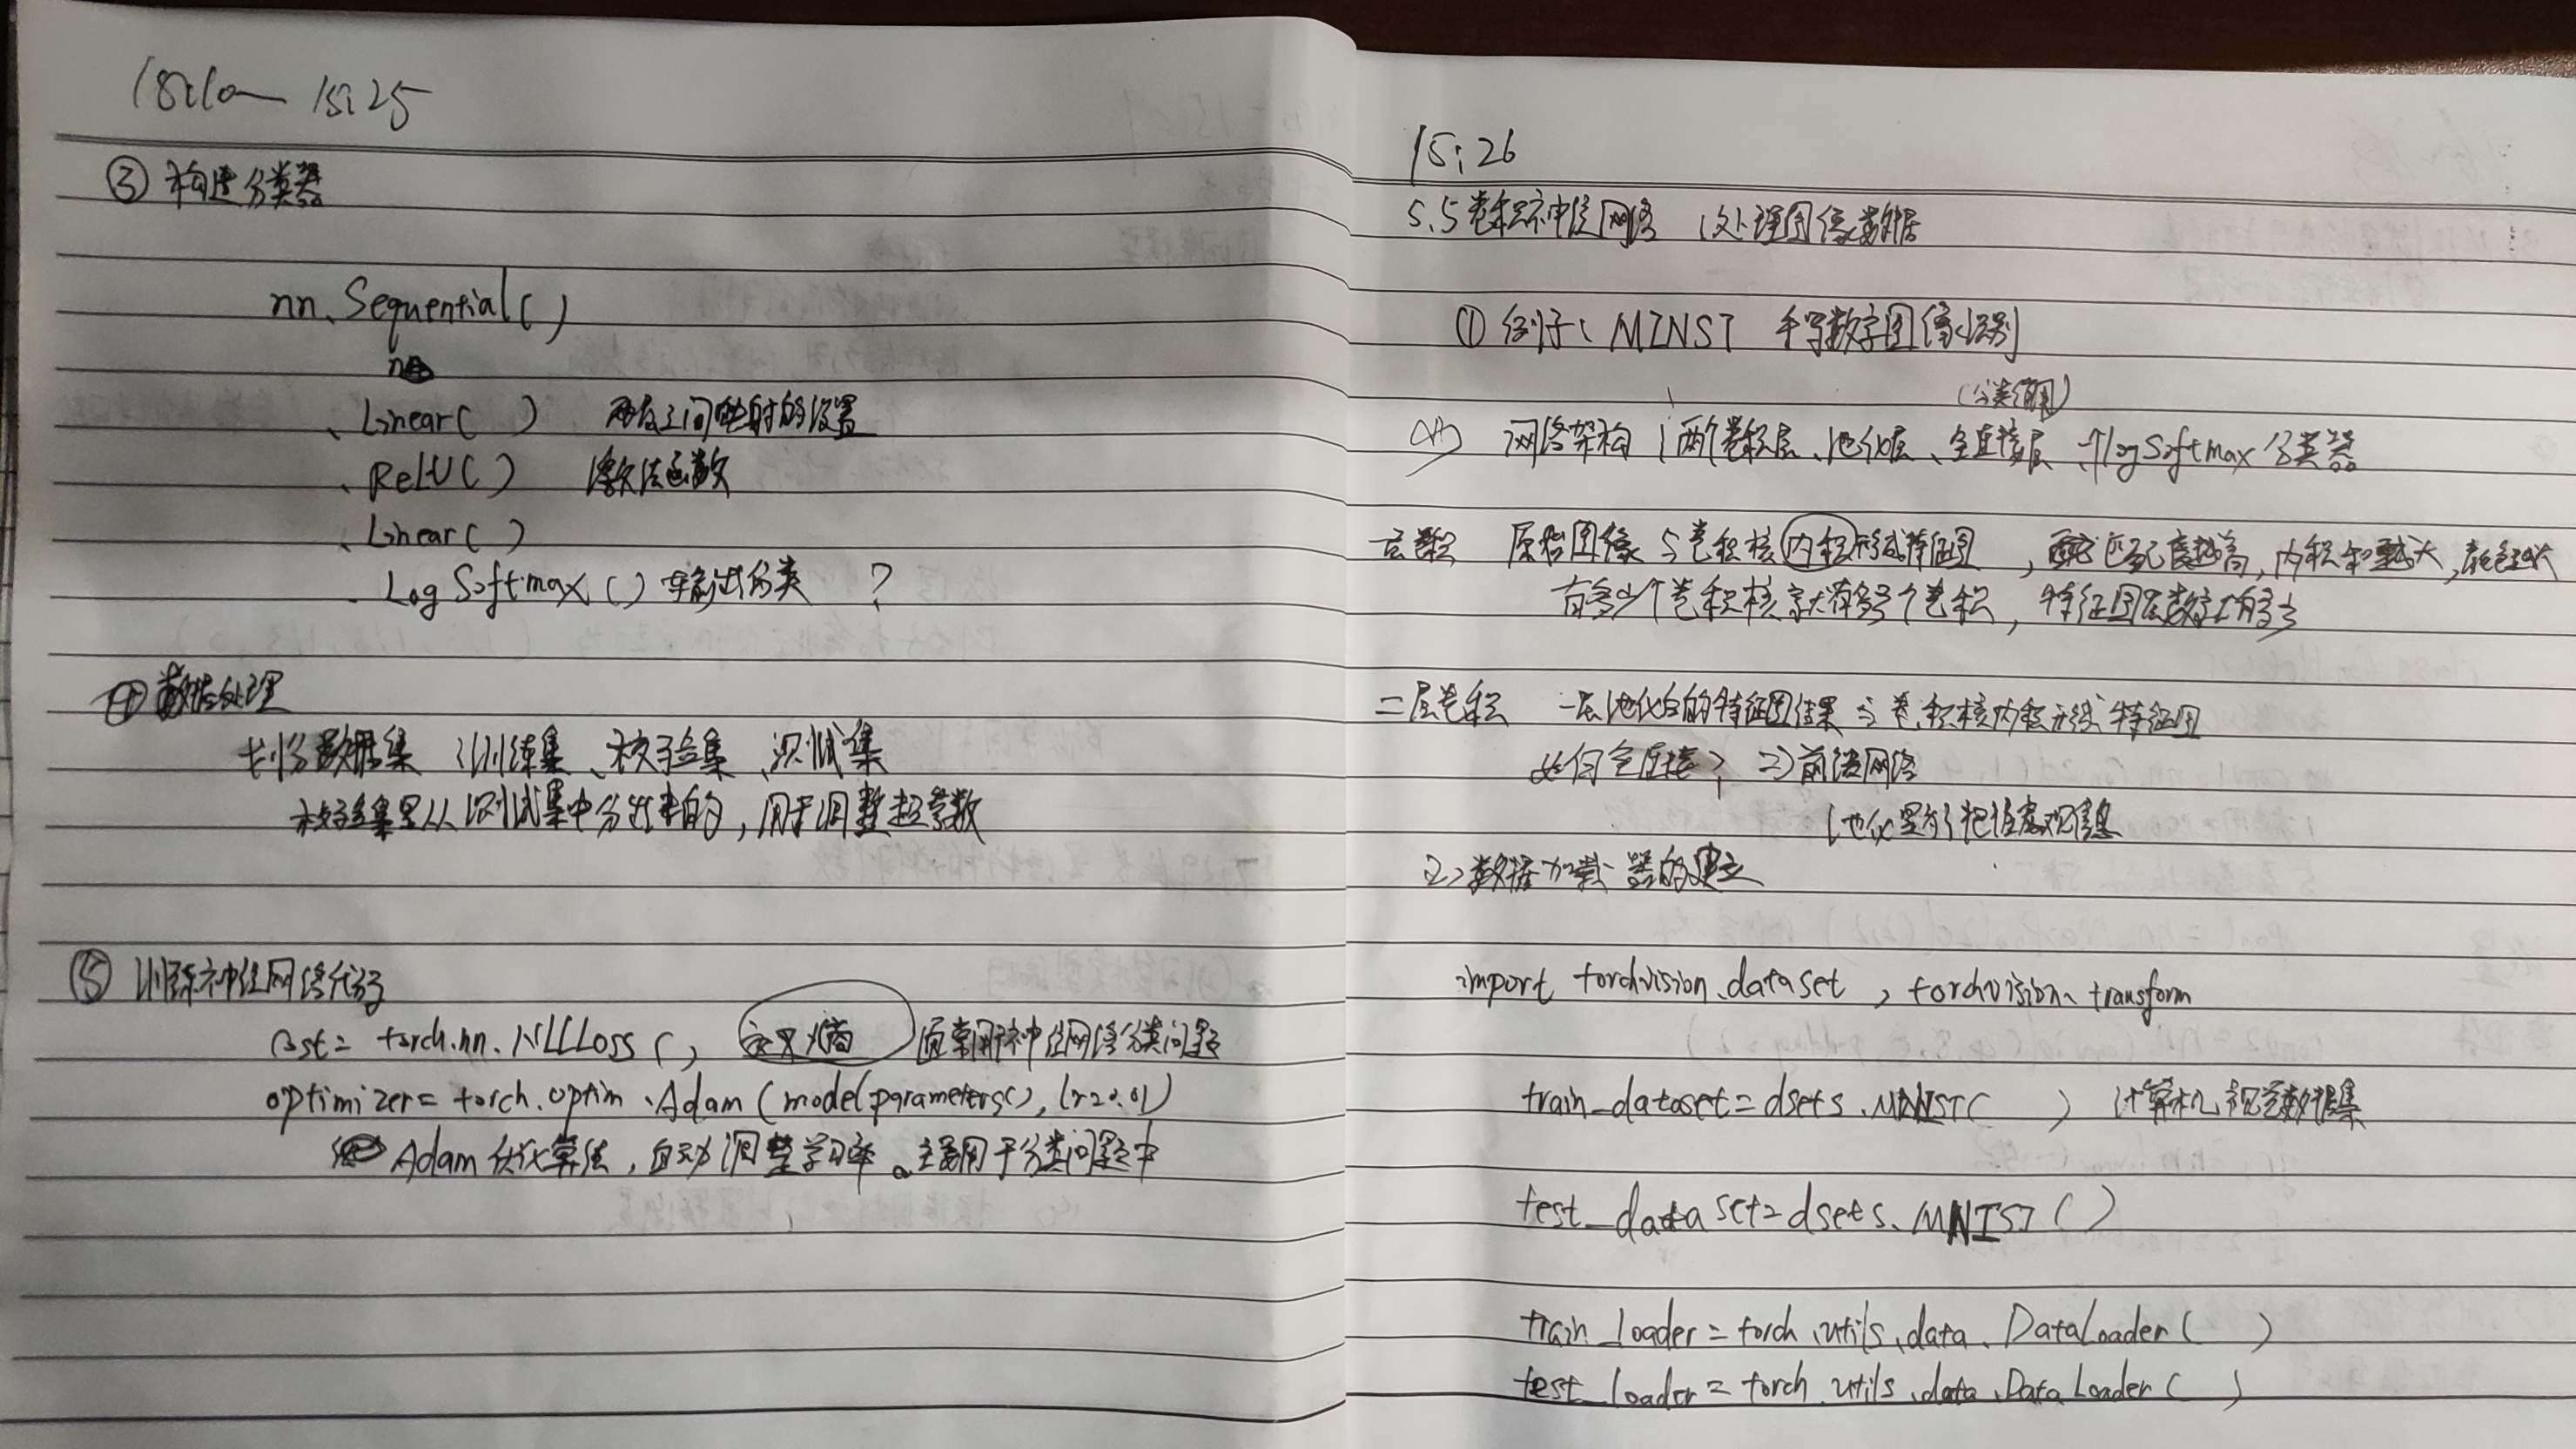 15:10— 15:25
③ 构造分类器
nn.Sequential()
.Linear( ) 两层之间映射的设置
.ReLU( ) 激活函数
.Linear( )
.LogSoftmax() 输出分类 ?
④ 数据处理
划分数据集 训练集、校验集、测试集
校验集是从测试集中分出来的，用于调整超参数
⑤ 训练神经网络代码
cost = torch.nn.NLLLoss( ) 交叉熵 通常用神经网络分类问题
optimizer = torch.optim.Adam(model.parameters(), lr=0.01)
Adam 优化算法，自动调整学习率。主要用于分类问题中
15:26
5.5 卷积神经网络 （处理图像数据
① 例子: MINST 手写数字图像识别
(分类须用)
<1> 网络架构 : 两个卷积层、池化层、全连接层 logSoftmax 分类器
一层卷积 原始图像与卷积核内积形成特征图 ，匹配度越高，内积和越大，颜色越大
有多少个卷积核就有多少个卷积，特征图层数就有多少
二层卷积 一层池化后的特征图结果与卷积核内积形成特征图
如何全连接？ => 前馈网络
(池化是为了把握宏观信息
2> 数据加载器的建立
import torchvision.dataset , torchvision.transform
train_dataset = dsets.MNIST( ) 计算机视觉数据集
test_dataset = dsets.MNIST( )
train_loader = torch.utils.data.DataLoader( )
test_loader = torch.utils.data.DataLoader( )